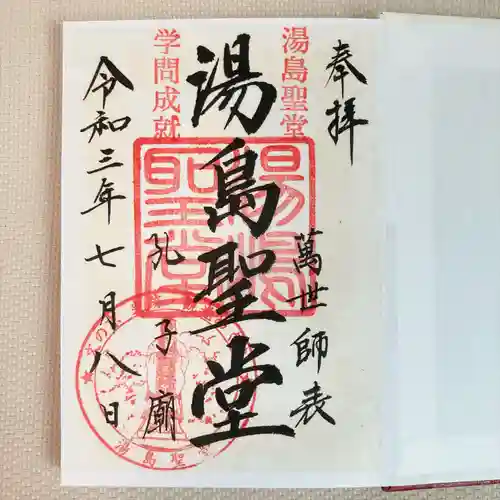 奉拝
湯島聖堂
萬世師表
湯島聖堂
湯島聖堂
学問成就
孔子廟
令和三年七月八日
湯島聖堂